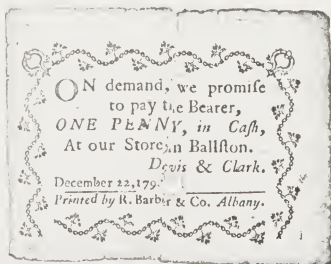 ON demand, we promiſe
to pay the Bearer,
ONE PENNY, in Caſh,
At our Store, in Ballſton.
Davis & Clark.
December 22, 179
Printed by R. Barber & Co. Albany.